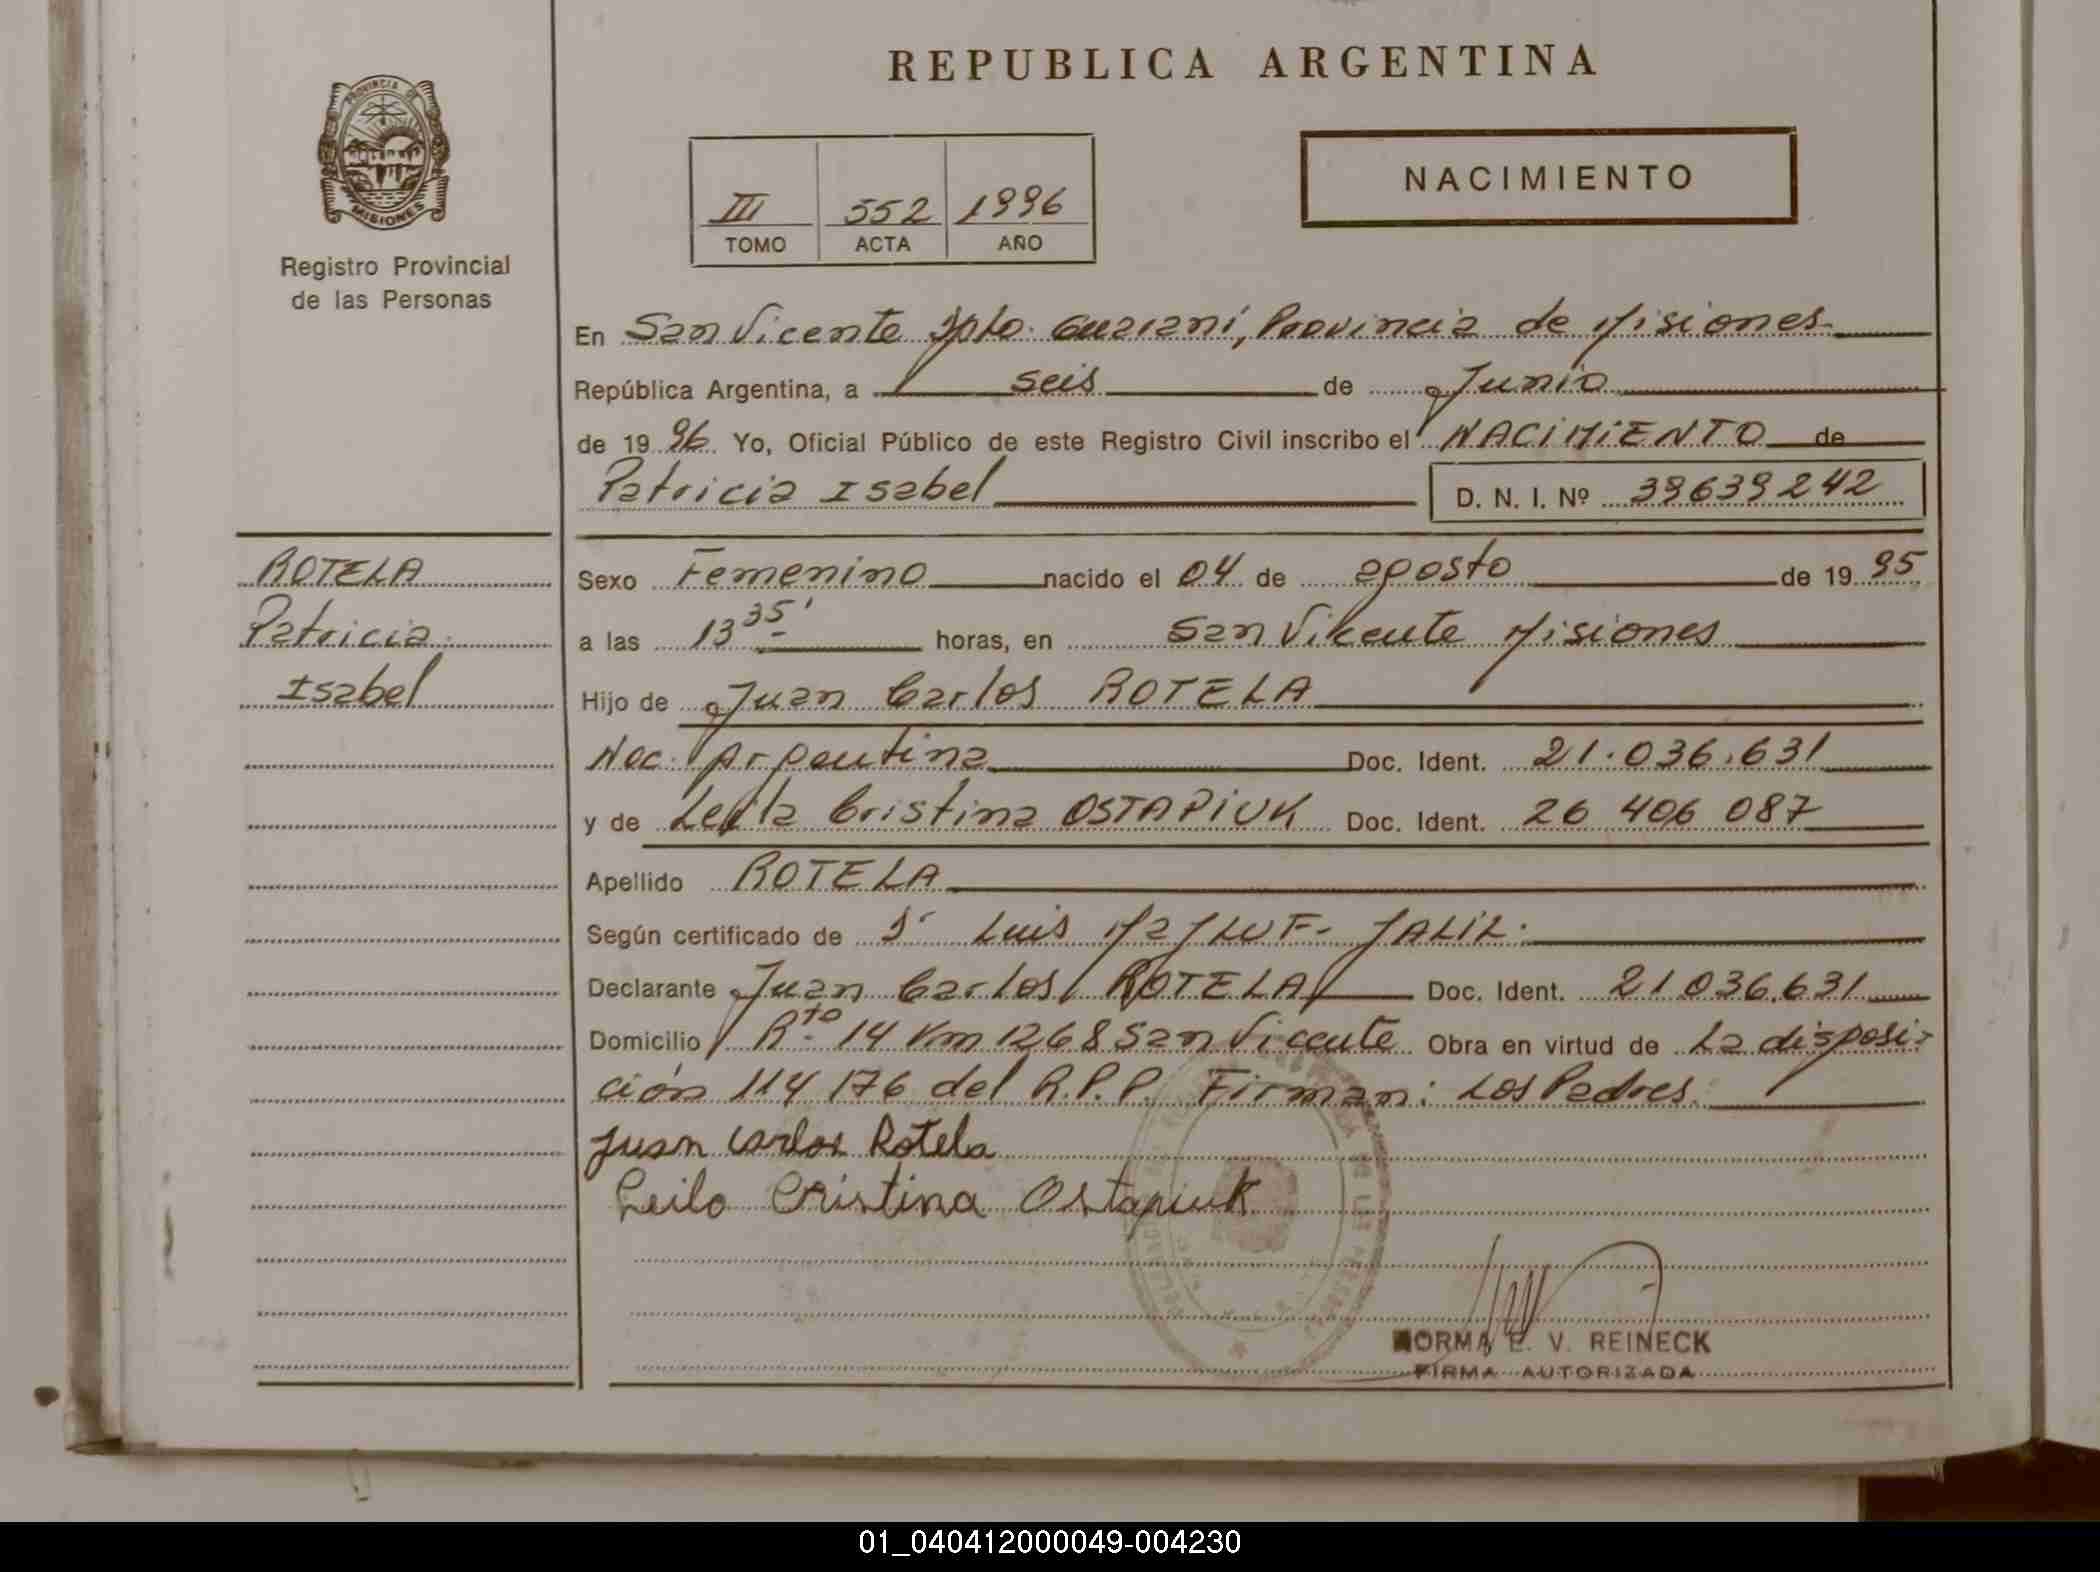 REPUBLICA ARGENTINA
PROVINCIA DE
MISIONES
Registro Provincial
de las Personas
III 552 1996
TOMO ACTA AÑO
NACIMIENTO
En San Vicente Dpto. Guaraní, Provincia de Misiones
República Argentina, a seis de Junio
de 1996. Yo, Oficial Público de este Registro Civil inscribo el NACIMIENTO de
Patricia Isabel D. N. I. Nº 39639242
ROTELA
Patricia
Isabel
Sexo Femenino nacido el 04 de agosto de 1995
a las 13 35' horas, en San Vicente Misiones
Hijo de Juan Carlos ROTELA
Nac. Argentina Doc. Ident. 21.036.631
y de Leila Cristina OSTAPIUK Doc. Ident. 26 406 087
Apellido ROTELA
Según certificado de Dr Luis JALIL.
Declarante Juan Carlos ROTELA Doc. Ident. 21.036.631
Domicilio Rta 14 Km 1268 San Vicente Obra en virtud de La disposi-
ción 114 176 del R.P.P. Firman: Los Padres.
Juan Carlos Rotela
Leila Cristina Ostapiuk
NORMA E. V. REINECK
FIRMA AUTORIZADA
01_040412000049-004230